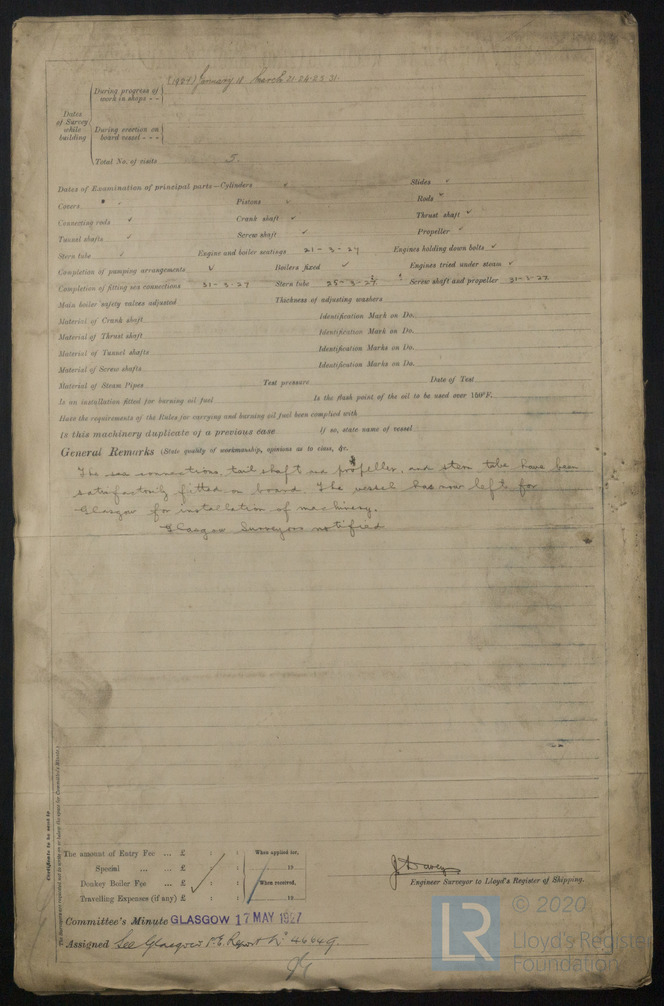 (1927) January 11 March 21.22.25.31
During progress of work in shops - -
Dates of Survey while building
During erection on board vessel - - -
Total No. of visits 5.
Dates of Examination of principal parts—Cylinders ✓ Slides ✓
Covers ✓ Pistons ✓ Rods ✓
Connecting rods ✓ Crank shaft ✓ Thrust shaft ✓
Tunnel shafts ✓ Screw shaft ✓ Propeller ✓
Stern tube ✓ Engine and boiler seatings 21-3-27 Engines holding down bolts ✓
Completion of pumping arrangements ✓ Boilers fixed ✓ Engines tried under steam ✓
Completion of fitting sea connections 31-3-27 Stern tube 25-3-27 Screw shaft and propeller 31-3-27
Main boiler safety valves adjusted Thickness of adjusting washers
Material of Crank shaft Identification Mark on Do.
Material of Thrust shaft Identification Mark on Do.
Material of Tunnel shafts Identification Marks on Do.
Material of Screw shafts Identification Marks on Do.
Material of Steam Pipes Test pressure Date of Test
Is an installation fitted for burning oil fuel Is the flash point of the oil to be used over 150°F.
Have the requirements of the Rules for carrying and burning oil fuel been complied with
Is this machinery duplicate of a previous case If so, state name of vessel
General Remarks (State quality of workmanship, opinions as to class, &c.
The sea connections, tail shaft and propeller, and stern tube have been
satisfactorily fitted on board. The vessel has now left for
Glasgow for installation of machinery.
Glasgow Surveyors notified
Certificate to be sent to
The amount of Entry Fee ... £ : : When applied for,
Special ... ... £ : : 19
Donkey Boiler Fee ... £ : : When received,
Travelling Expenses (if any) £ : : 19
Engineer Surveyor to Lloyd's Register of Shipping.
Committee's Minute GLASGOW 17 MAY 1927
Assigned See Glasgow F.E. Report No 46649.
© 2020
LR Lloyd's Register
Foundation